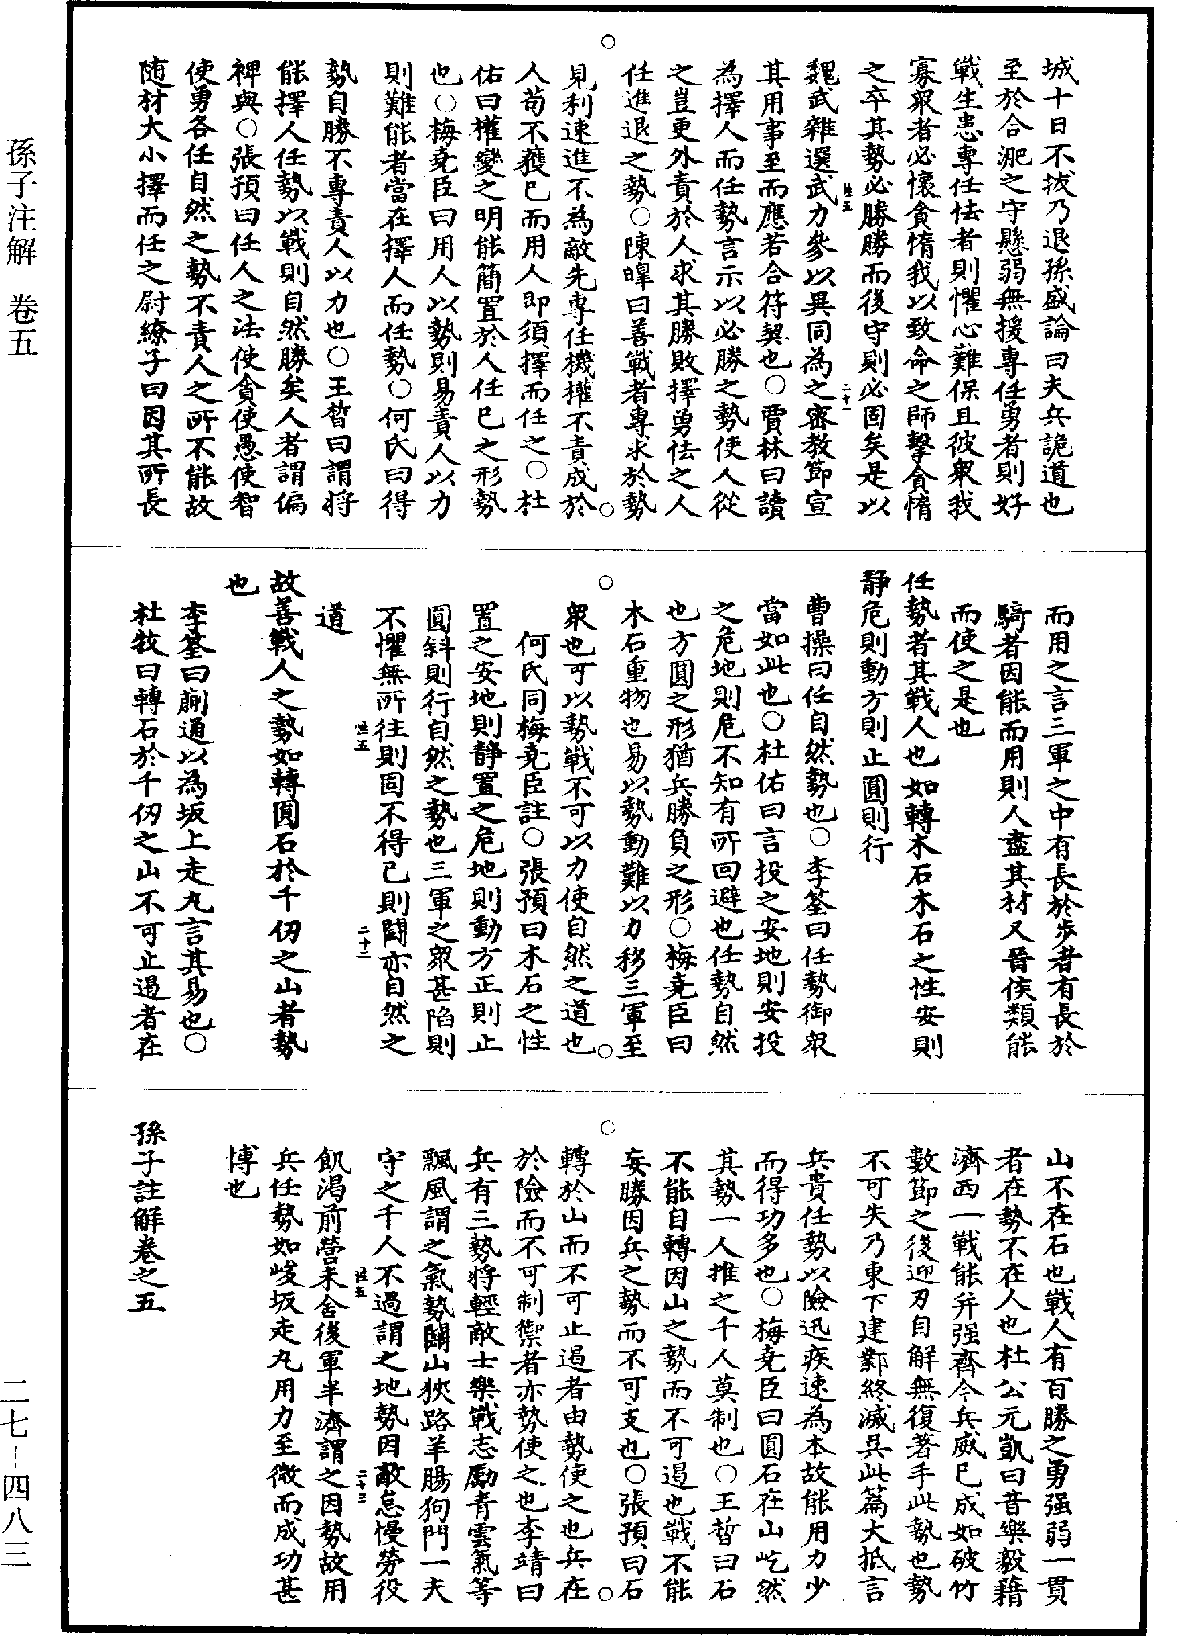 孫子注解　卷五
二七–四八三
城十日不拔乃退孫盛論曰夫兵詭道也
至於合淝之守懸弱無援專任勇者則好
戰生患專任怯者則懼心難保且彼衆我
寡衆者必懷貪惰我以致命之師擊貪惰
之卒其勢必勝勝而後守則必固矣是以
魏武雜選武力參以異同為之密教節宣
其用事至而應若合符契也○賈林曰讀
為擇人而任勢言示以必勝之勢使人從
之豈更外責於人求其勝敗擇勇怯之人
任進退之勢○陳皥曰善戰者專求於勢
見利速進不為敵先專任機權不責成於
人苟不獲已而用人即須擇而任之○杜
佑曰權變之明能簡置於人任已之形勢
也○梅堯臣曰用人以勢則易責人以力
則難能者當在擇人而任勢○何氏曰得
勢自勝不專責人以力也○王晳曰謂將
能擇人任勢以戰則自然勝矣人者謂偏
裨與○張預曰任人之法使貪使愚使智
使勇各任自然之勢不責人之所不能故
隨材大小擇而任之尉繚子曰因其所長
而用之言三軍之中有長於步者有長於
騎者因能而用則人盡其材又晉侯類能
而使之是也
任勢者其戰人也如轉木石木石之性安則
靜危則動方則止圓則行
曹操曰任自然勢也○李筌曰任勢御衆
當如此也○杜佑曰言投之安地則安投
之危地則危不知有所回避也任勢自然
也方圓之形猶兵勝負之形○梅堯臣曰
木石重物也易以勢動難以力移三軍至
衆也可以勢戰不可以力使自然之道也
何氏同梅堯臣註○張預曰木石之性
置之安地則靜置之危地則動方正則止
圓斜則行自然之勢也三軍之衆甚陷則
不懼無所往則固不得已則鬬亦自然之
道
故善戰人之勢如轉圓石於千仞之山者勢
也
李筌曰蒯通以為坂上走丸言其易也○
杜牧曰轉石於千仞之山不可止遏者在
山不在石也戰人有百勝之勇强弱一貫
者在勢不在人也杜公元凱曰昔樂毅藉
濟西一戰能并强齊今兵威已成如破竹
數節之後迎刃自解無復著手此勢也勢
不可失乃東下建鄴終滅吳此篇大抵言
兵貴任勢以險迅疾速為本故能用力少
而得功多也○梅堯臣曰圓石在山屹然
其勢一人推之千人莫制也○王晳曰石
不能自轉因山之勢而不可遏也戰不能
妄勝因兵之勢而不可支也○張預曰石
轉於山而不可止遏者由勢使之也兵在
於險而不可制禦者亦勢使之也李靖曰
兵有三勢將輕敵士樂戰志勵青雲氣等
飄風謂之氣勢關山狹路羊腸狗門一夫
守之千人不過謂之地勢因敵怠慢勞役
飢渴前營未舍後軍半濟謂之因勢故用
兵任勢如峻坂走丸用力至微而成功甚
博也
孫子註解卷之五